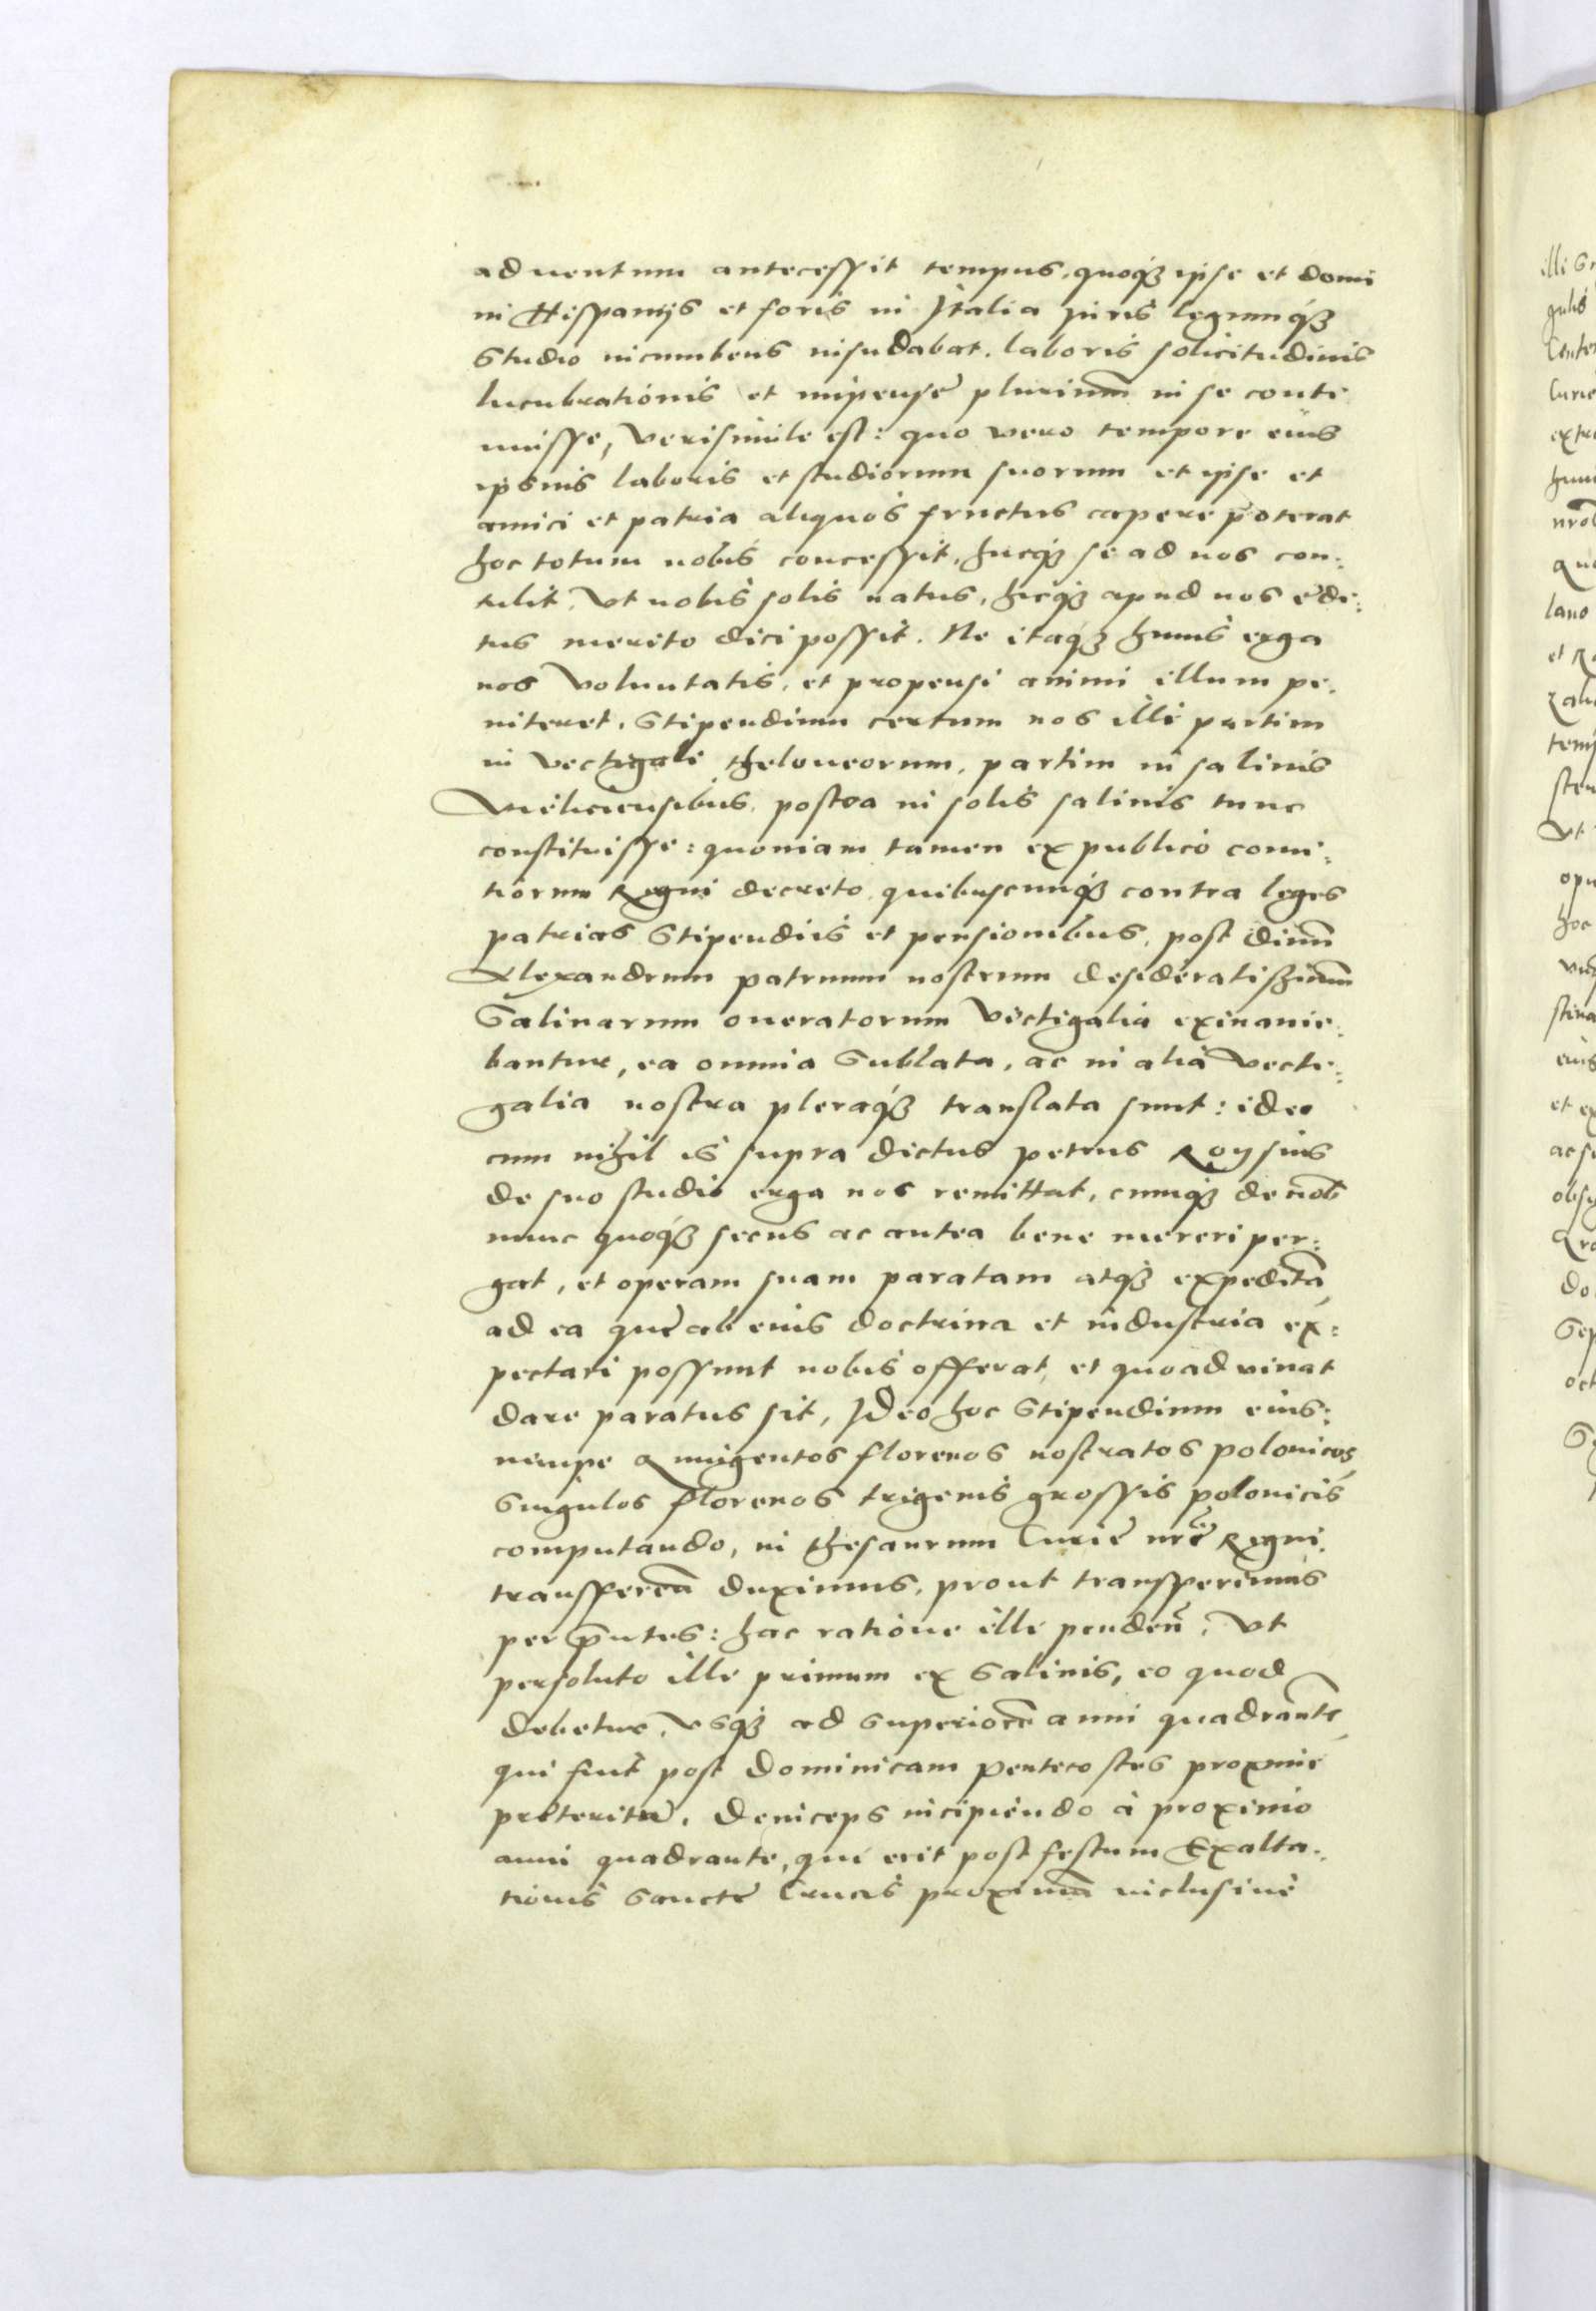 aduentum antecessit tempus, quoq₃ ipse et domi
in Hispanijs et foris in Italia iuris legumq₃
studio incumbens insudabat, laboris solicitudinis
lucubrationis et impense plurimū in se conti
nuisse, verisimile est: quo vero tempore eius
ipsius laboris et studiorum suorum et ipse et
amici et patria aliquos fructus capere poterat
hoc totum nobis concessit, hucq₃ se ad nos con:
tulit, vt nobis solis natus, hicq₃ apud nos edi:
tus merito dici possit. Ne itaq₃ huius erga
nos voluntatis, et propensi animi illum pe,
niteret, stipendium certum nos illi partim
in vectigali theloneorum, partim in salinis
Vieliciensibus, postea in solis salinis tunc
constituisse: quoniam tamen ex publico comi:
tiorum Regni decreto, quibuscunq₃ contra leges
patrias stipendiis et pensionibus, post diuū
Alexandrum patruum nostrum desideratissimū
Salinarum oneratorum vectigalia exinanie:
bantur, ea omnia sublata, ac in alia vecti:
galia nostra pleraq₃ translata sunt: ideo
cum nihil is supra dictus petrus Roysius
de suo studio erga nos remittat, cumq₃ de nob
nunc quoq₃ secus ac antea bene mereri per:
gat, et operam suam paratam atq₃ expeditā
ad ea que ab eius doctrina et industria ex:
pectari possunt nobis offerat, et quoad viuat
dare paratus sit, Ideo hoc stipendium eius:
nempe Quingentos florenos nostratos polonicos
singulos florenos trigenis grossis polonicis
computando, in thesaurum Curie nrē Regni,
transferen̄ duximus, prout transferimus
per p̄ntes: hac ratione illi penden̄, vt
persoluto illi primum ex Salinis, eo quod
debetur, vsq₃ ad superiorē anni quadrantē
qui fuit post Dominicam Pentecostes proxime
preterita, deinceps incipiendo à proximo
anni quadrante, qui erit post festum Exalta:
tionis Sancte Crucis proximū inclusiue